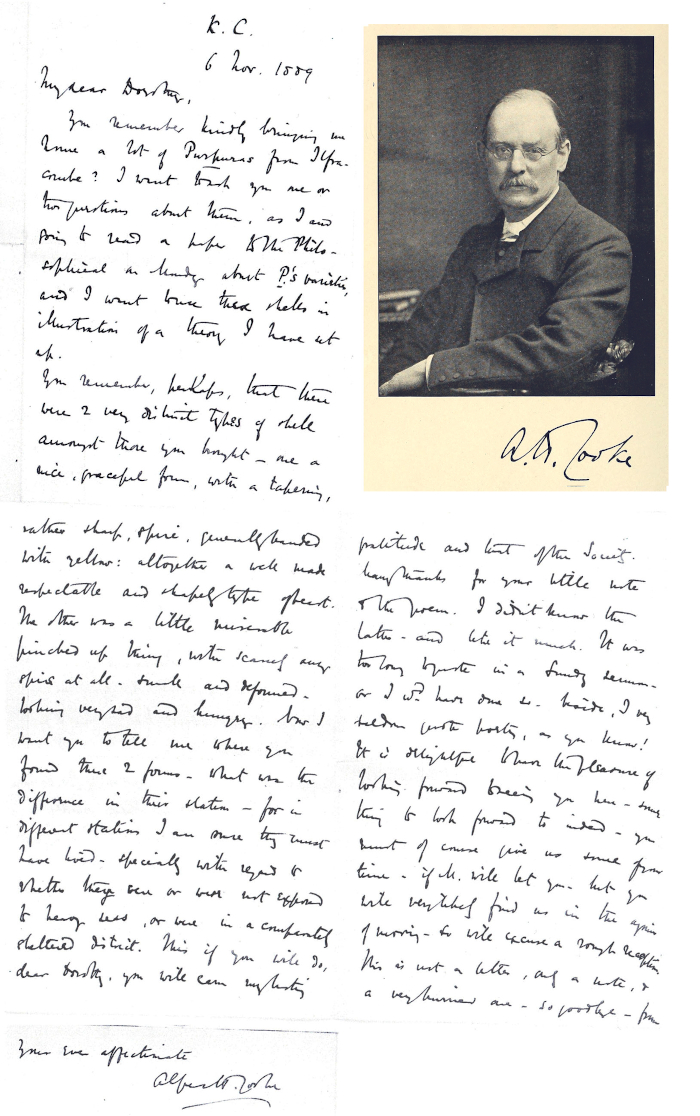 K. C.
6 Nov. 1889
My dear Dorothy,
You remember kindly bringing me
home a lot of Purpuras from Ilfra-
combe? I want to ask you one or
two questions about them, as I am
going to read a paper to the Philo-
sophical on Monday about P.'s varieties,
and I want to use these shells in
illustration of a theory I have set
up.
You remember, perhaps, that there
were 2 very distinct types of shell
amongst those you brought - one a
nice, graceful form, with a tapering,
rather sharp, spire, generally banded
with yellow: altogether a well made
respectable and shapely type of beast.
The other was a little miserable
pinched up thing, with scarcely any
spire at all - small and deformed -
looking very sad and hungry. Now I
want you to tell me where you
found these 2 forms - what was the
difference in their station - for in
different stations I am sure they must
have lived - specially with regard to
whether they were or were not exposed
to heavy seas, or were in a comparatively
sheltered district. This if you will do,
dear Dorothy, you will earn my lasting
gratitude and that of the Society.
Many thanks for your little note
& the poem. I didn't know the
latter - and like it much. It was
too long to quote in a Sunday sermon -
or I wd. have done so - beside, I very
seldom quote poetry, as you know!
It is delightful to have the pleasure of
looking forward to seeing you here - some
thing to look forward to indeed - you
must of course give us some of your
time - if M. will let you - but you
will very likely find us in the agonies
of moving - so will excuse a rough reception
This is not a letter, only a note, &
a very hurried one - so goodbye - from
Your ever affectionate
Alfred H. Cooke
A. H. Cooke